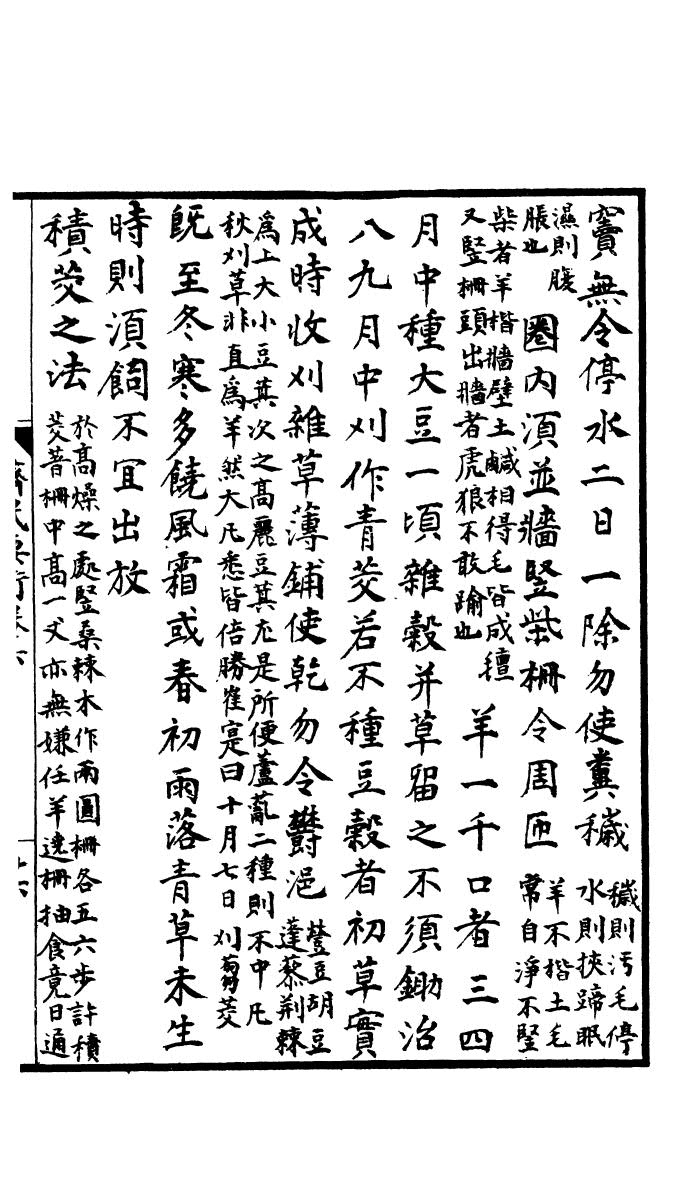 竇無令停水二日一除勿使糞穢穢則汚毛停
水則挾蹄眠
濕則腹
脹也圈內湏並牆竪柴柵令周匝羊不揩土毛
常自淨不竪
柴者羊揩牆壁土鹹相得毛皆成氊
又竪柵頭出牆者虎狼不敢踰也羊一千口者三四
月中種大豆一頃雜穀并草留之不須鋤治
八九月中刈作青茭若不種豆穀者初草實
成時收刈雜草薄鋪使乾勿令鬱浥豋豆胡豆
蓬藜荆棘
爲上大小豆萁次之高麗豆萁尤是所便蘆薍二種則不中凡
秋刈草非直爲羊然大凡悉皆倍勝崔寔曰十月七日刈芻茭
既至冬寒多饒風霜或春初雨落青草未生
時則湏飼不宜出放
積茭之法於高燥之處竪桑棘木作兩圓柵各五六步許積
茭著柵中高一丈亦無嫌任羊遶柵抽食竟日通
齊民要術卷六
十六